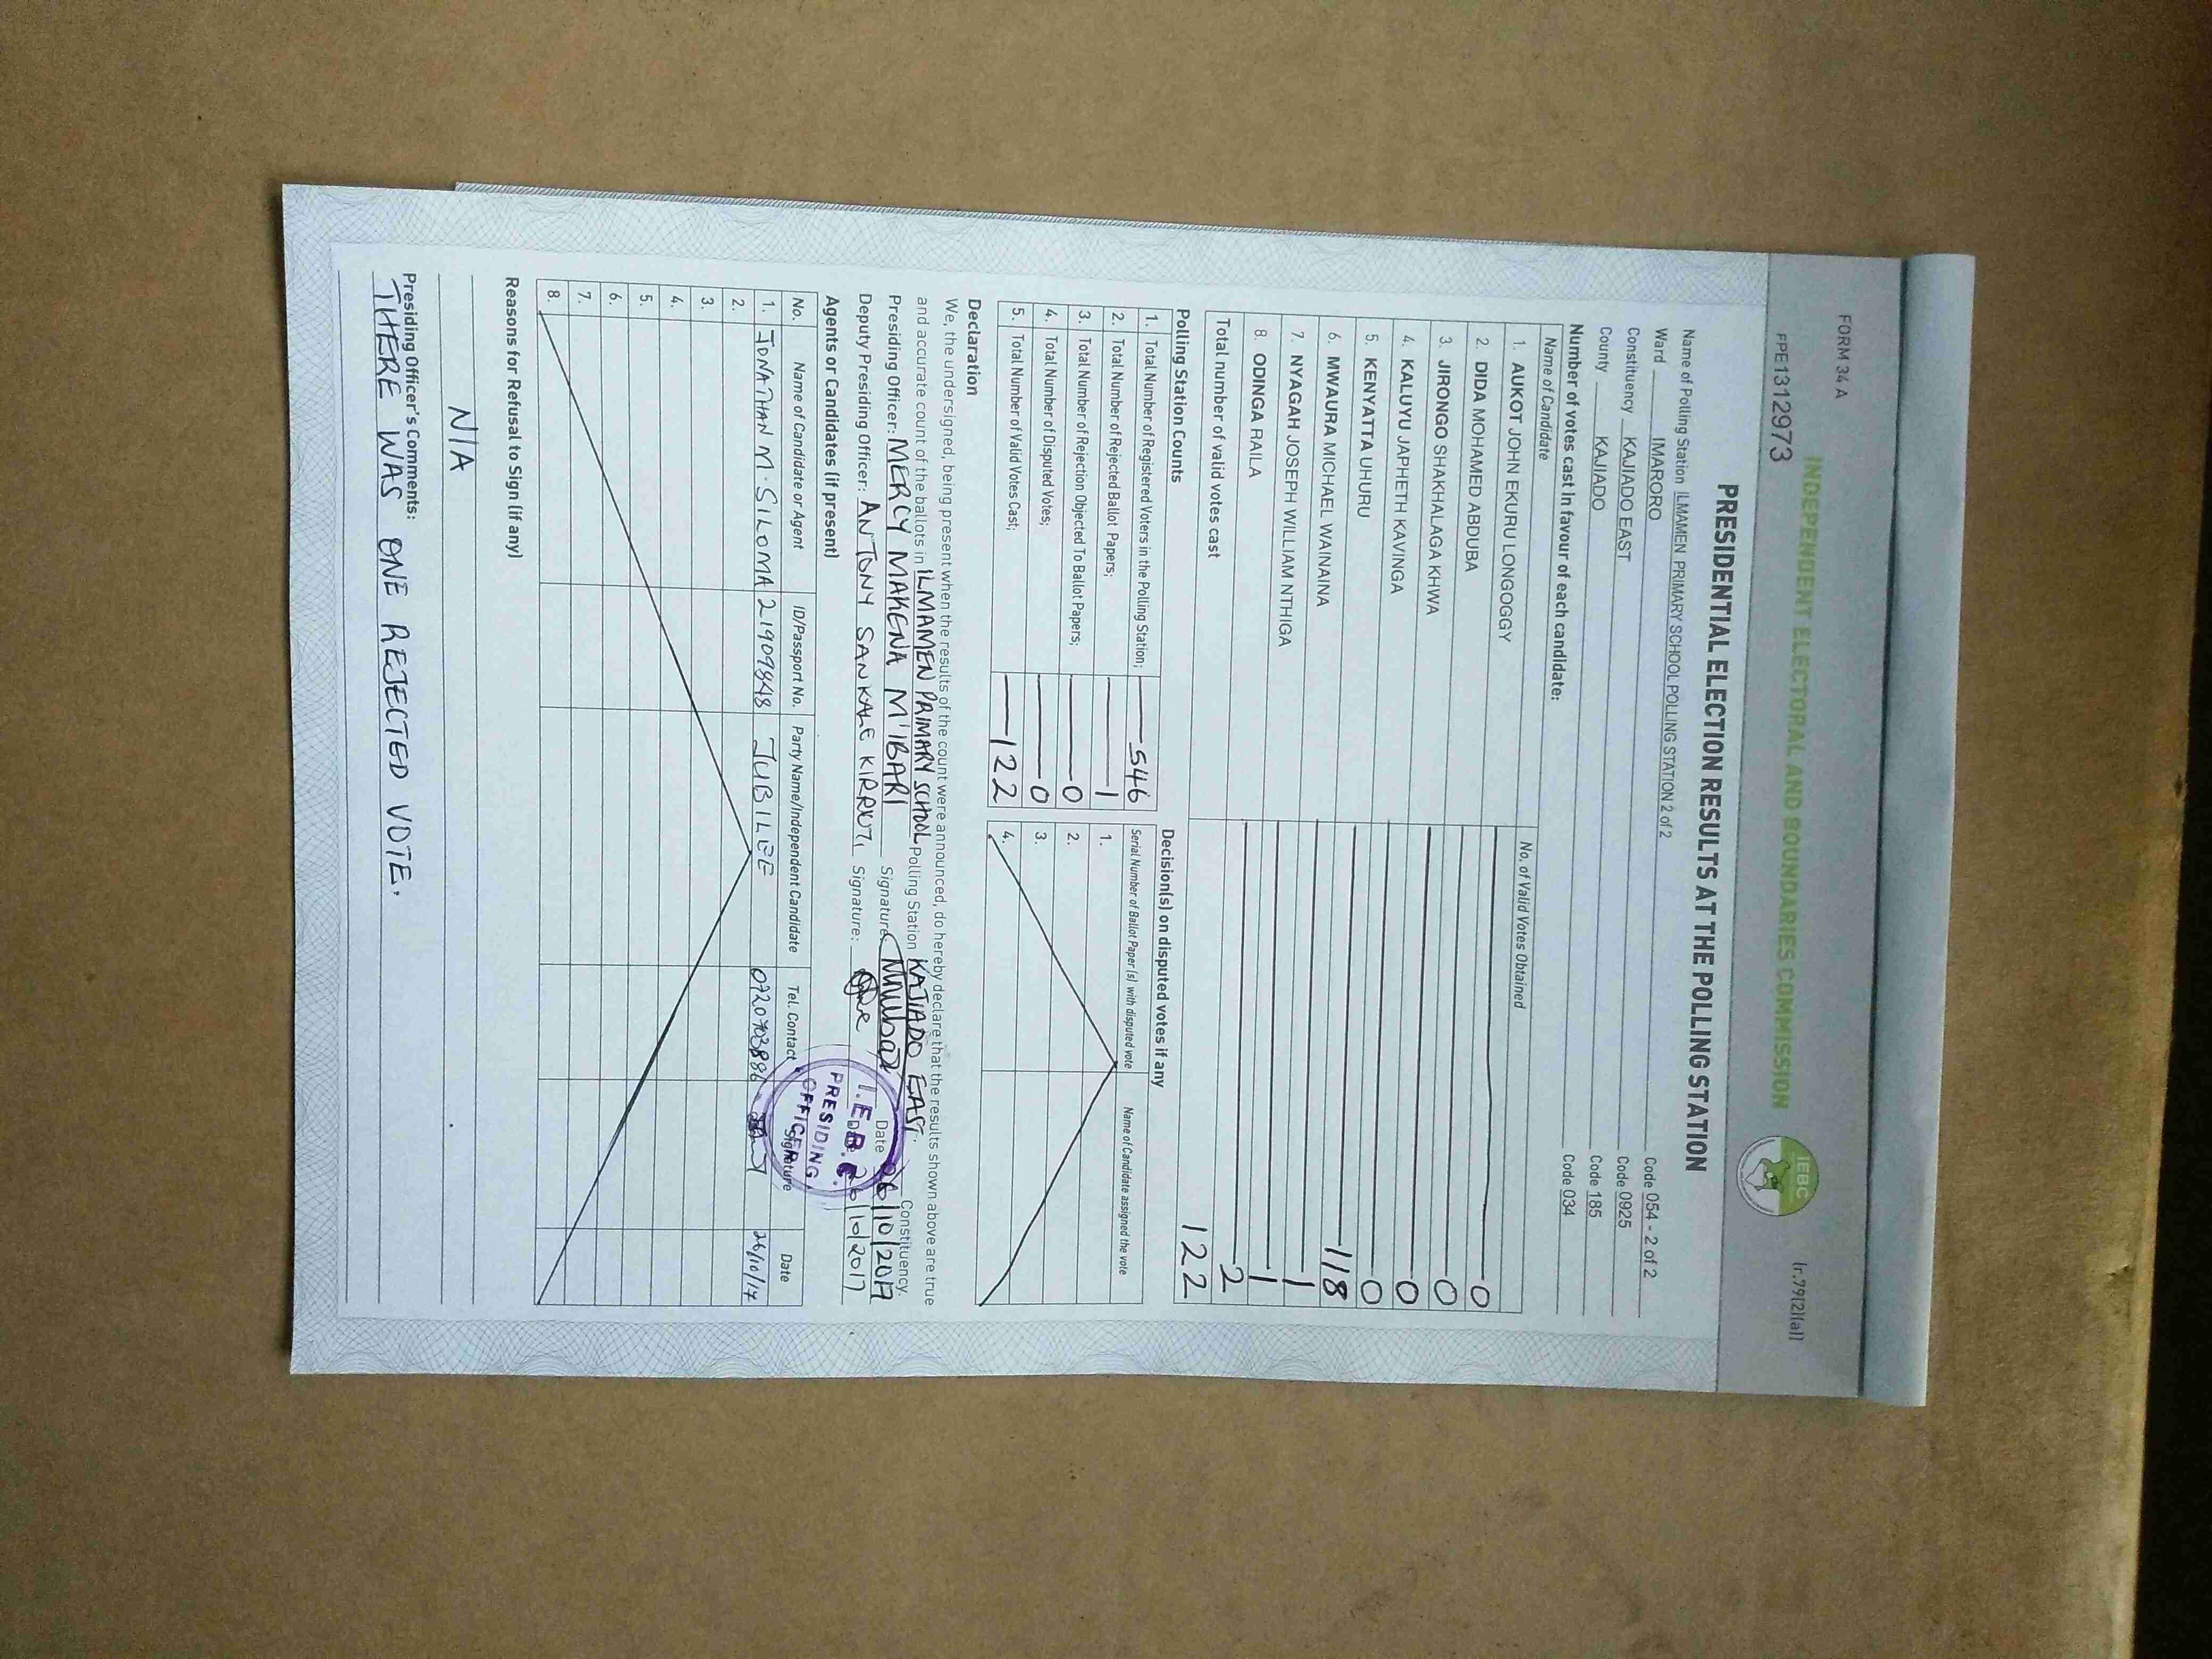 FORM 34 A
(r.79(2)(a))
INDEPENDENT ELECTORAL AND BOUNDARIES COMMISSION
IEBC
FPE1312973
PRESIDENTIAL ELECTION RESULTS AT THE POLLING STATION
Name of Polling Station ILMAMEN PRIMARY SCHOOL POLLING STATION 2 of 2 Code 054 - 2 of 2
Ward IMARORO Code 0925
Constituency KAJIADO EAST Code 185
County KAJIADO Code 034
Number of votes cast in favour of each candidate:
Name of Candidate No. of Valid Votes Obtained
1. AUKOT JOHN EKURU LONGOGGY 0
2. DIDA MOHAMED ABDUBA 0
3. JIRONGO SHAKHALAGA KHWA 0
4. KALUYU JAPHETH KAVINGA 0
5. KENYATTA UHURU 118
6. MWAURA MICHAEL WAINAINA 1
7. NYAGAH JOSEPH WILLIAM NTHIGA 1
8. ODINGA RAILA 2
Total number of valid votes cast 122
Polling Station Counts
1. Total Number of Registered Voters in the Polling Station; 546
2. Total Number of Rejected Ballot Papers; 1
3. Total Number of Rejection Objected To Ballot Papers; 0
4. Total Number of Disputed Votes; 0
5. Total Number of Valid Votes Cast; 122
Decision(s) on disputed votes if any
Serial Number of Ballot Paper (s) with disputed vote Name of Candidate assigned the vote
1.
2.
3.
4.
Declaration
We, the undersigned, being present when the results of the count were announced, do hereby declare that the results shown above are true
and accurate count of the ballots in ILMAMEN PRIMARY SCHOOL Polling Station KAJIADO EAST Constituency.
Presiding Officer: MERCY MAKENA M'IBARI Signature: Date 26/10/2017
Deputy Presiding Officer: ANTONY SANKALE KIRRUTI Signature: Date 26/10/2017
I.E.B.C.
PRESIDING
OFFICER
Agents or Candidates (if present)
No. Name of Candidate or Agent ID/Passport No. Party Name/Independent Candidate Tel. Contact Signature Date
1. JONATHAN M. SILOMA 21909848 JUBILEE 0720703886 26/10/17
2.
3.
4.
5.
6.
7.
8.
Reasons for Refusal to Sign (if any)
N/A
Presiding Officer's Comments:
THERE WAS ONE REJECTED VOTE.